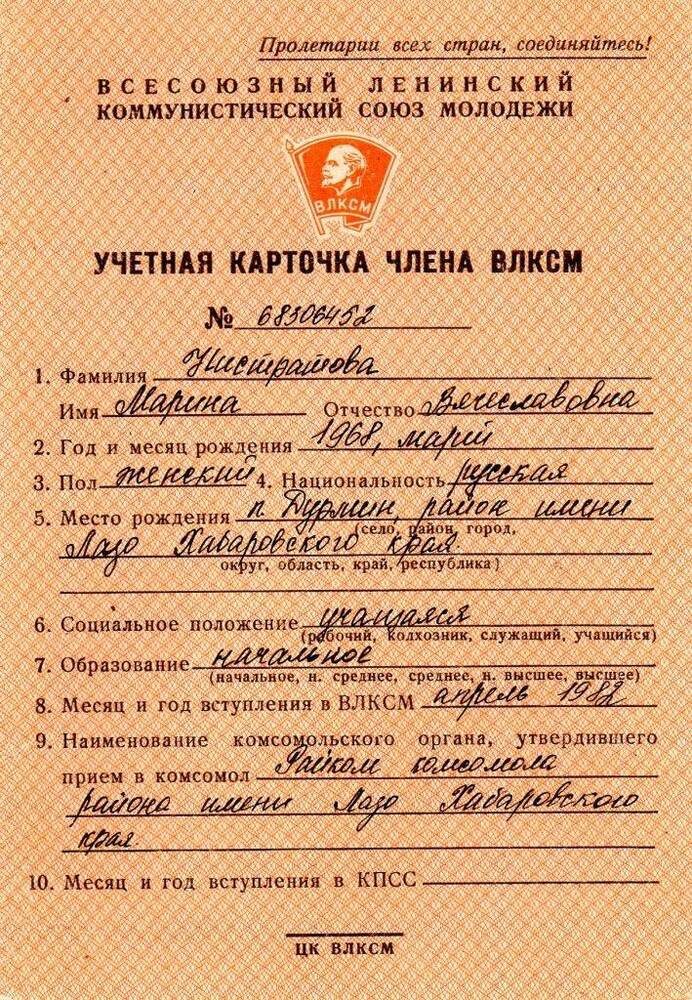 Пролетарии всех стран, соединяйтесь!
ВСЕСОЮЗНЫЙ ЛЕНИНСКИЙ
КОММУНИСТИЧЕСКИЙ СОЮЗ МОЛОДЕЖИ
ВЛКСМ
УЧЕТНАЯ КАРТОЧКА ЧЛЕНА ВЛКСМ
№ 68306452
1. Фамилия Нистратова
Имя Марина Отчество Вячеславовна
2. Год и месяц рождения 1968, март
3. Пол женский 4. Национальность русская
5. Место рождения п. Дурмин, район имени
(село, район, город,
Лазо Хабаровского края.
округ, область, край, республика)
6. Социальное положение учащаяся
(рабочий, колхозник, служащий, учащийся)
7. Образование начальное
(начальное, н. среднее, среднее, н. высшее, высшее)
8. Месяц и год вступления в ВЛКСМ апрель 1982
9. Наименование комсомольского органа, утвердившего
прием в комсомол Райком комсомола
района имени Лазо Хабаровского
края.
10. Месяц и год вступления в КПСС
ЦК ВЛКСМ